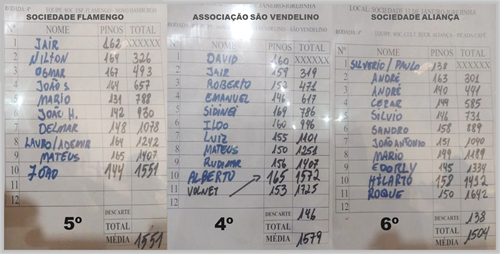 SOCIEDADE FLAMENGO
Nº NOME PINOS TOTAL
1 JAIR 162 XXXXXX
2 NILTON 164 326
3 OSMAR 167 493
4 JOÃO S. 164 657
5 MARIO 131 788
6 JOÃO H. 142 930
7 DELMAR 148 1078
8 LAURO/ADEMIR 164 1242
9 MATEUS 165 1407
10 JOÃO 144 1551
11
12
5º
DESCARTE
TOTAL
MÉDIA 1551
ASSOCIAÇÃO SÃO VENDELINO
Nº NOME PINOS TOTAL
1 DAVID 160 XXXXXX
2 JAIR 159 319
3 ROBERTO 152 471
4 EMANUEL 146 617
5 SIDINEI 169 786
6 ILDO 160 946
7 LUIZ 155 1101
8 MATEUS 150 1251
9 RUDIMAR 156 1407
10 ALBERTO 165 1572
11 VOLNEI 153 1725
12
4º
DESCARTE 146
TOTAL
MÉDIA 1579
SOCIEDADE ALIANÇA
Nº NOME PINOS TOTAL
1 SILVERIO/PAULO 138 XXXXXX
2 ANDRÉ 163 301
3 ANDRÉ 140 441
4 CEZAR 144 585
5 SILVIO 146 731
6 SANDRO 158 889
7 JOÃO ANTONIO 151 1040
8 MARIO 149 1189
9 EDORLY 145 1334
10 HILARIO 158 1492
11 ROQUE 150 1642
12
6º
DESCARTE 138
TOTAL
MÉDIA 1504